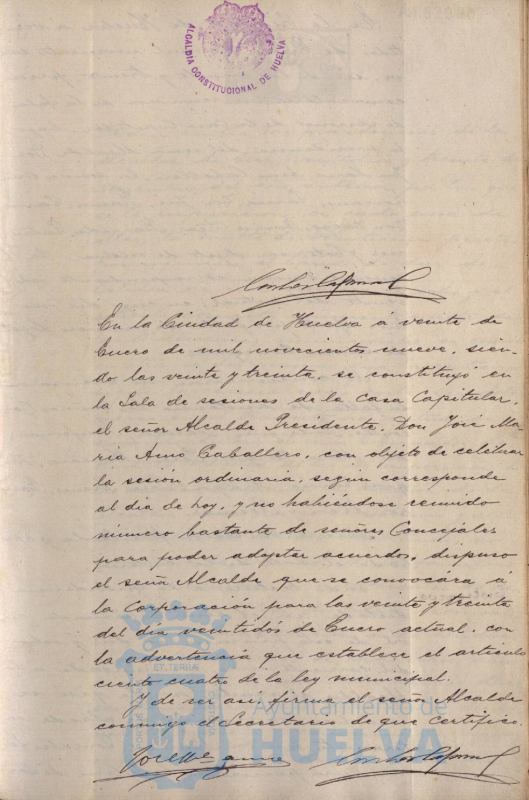 ALCALDIA CONSTITUCIONAL DE HUELVA
En la Ciudad de Huelva á veinte de
Enero de mil novecientos nueve, sien-
do las veinte y treinta, se constituyó en
la Sala de sesiones de la Casa Capitular,
el señor Alcalde Presidente, Don José Ma-
ria Amo Caballero, con objeto de celebrar
la sesión ordinaria, según corresponde
al dia de hoy, y no habiéndose reunido
número bastante de señores Concejales
para poder adoptar acuerdo, dispuso
el señor Alcalde que se convocára á
la Corporación para las veinte y treinta
del día veintidós de Enero actual, con
la advertencia que establece el artículo
ciento cuatro de la ley municipal.
Y de ser asi firma el señor Alcalde
conmigo el Secretario de que certifico.
Ayuntamiento de
HUELVA